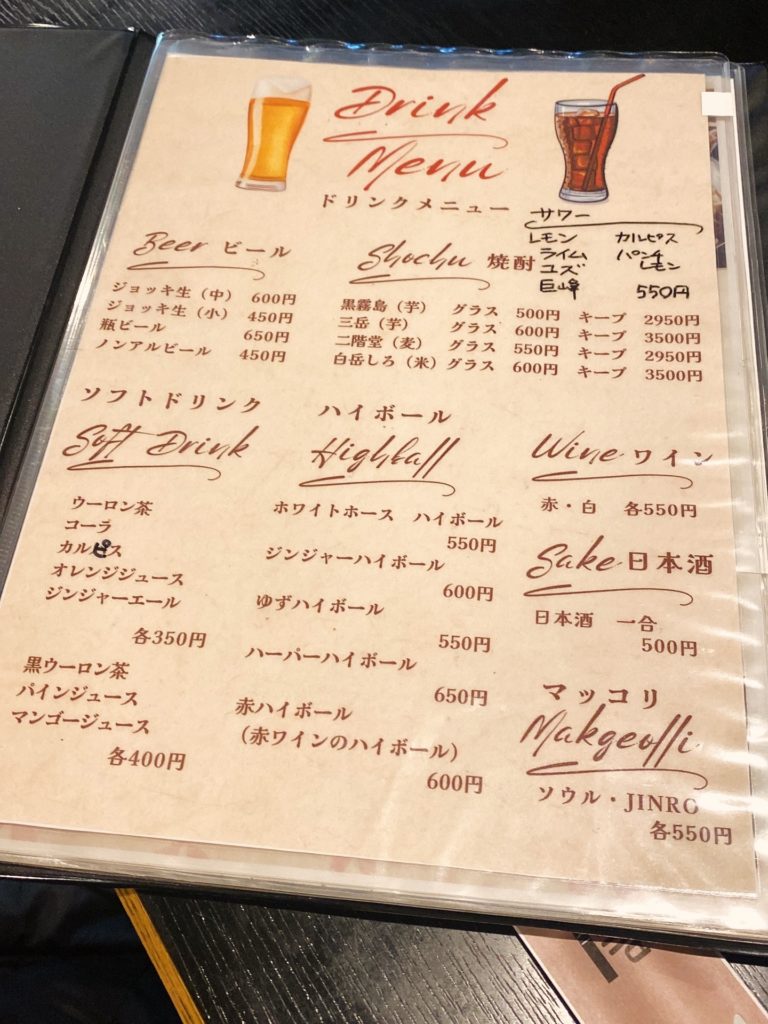 Drink
Menu
ドリンクメニュー
サワー
レモン カルピス
ライム パンチレモン
ユズ
巨峰 550円
Beer ビール
ジョッキ生（中） 600円
ジョッキ生（小） 450円
瓶ビール 650円
ノンアルビール 450円
Shochu 焼酎
黒霧島（芋） グラス 500円 キープ 2950円
三岳（芋） グラス 600円 キープ 3500円
二階堂（麦） グラス 550円 キープ 2950円
白岳しろ（米）グラス 600円 キープ 3500円
ソフトドリンク
Soft Drink
ウーロン茶
コーラ
カルピス
オレンジジュース
ジンジャーエール
各350円
黒ウーロン茶
パインジュース
マンゴージュース
各400円
ハイボール
Highball
ホワイトホース ハイボール
550円
ジンジャーハイボール
600円
ゆずハイボール
550円
ハーパーハイボール
650円
赤ハイボール
（赤ワインのハイボール）
600円
Wine ワイン
赤・白 各550円
Sake 日本酒
日本酒 一合
500円
マッコリ
Makgeolli
ソウル・JINRO
各550円